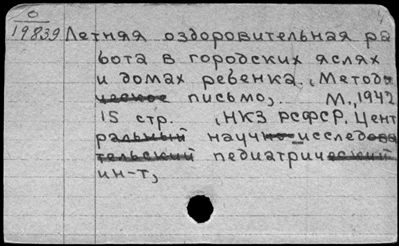 0
19839
Летняя оздоровительная ра
бота в городских яслях
и домах ребенка. (Методи
ческое письмо). М., 1942
15 стр. (НКЗ РСФСР, Цент
ральный научно-исследова
тельский педиатрический
ин-т)